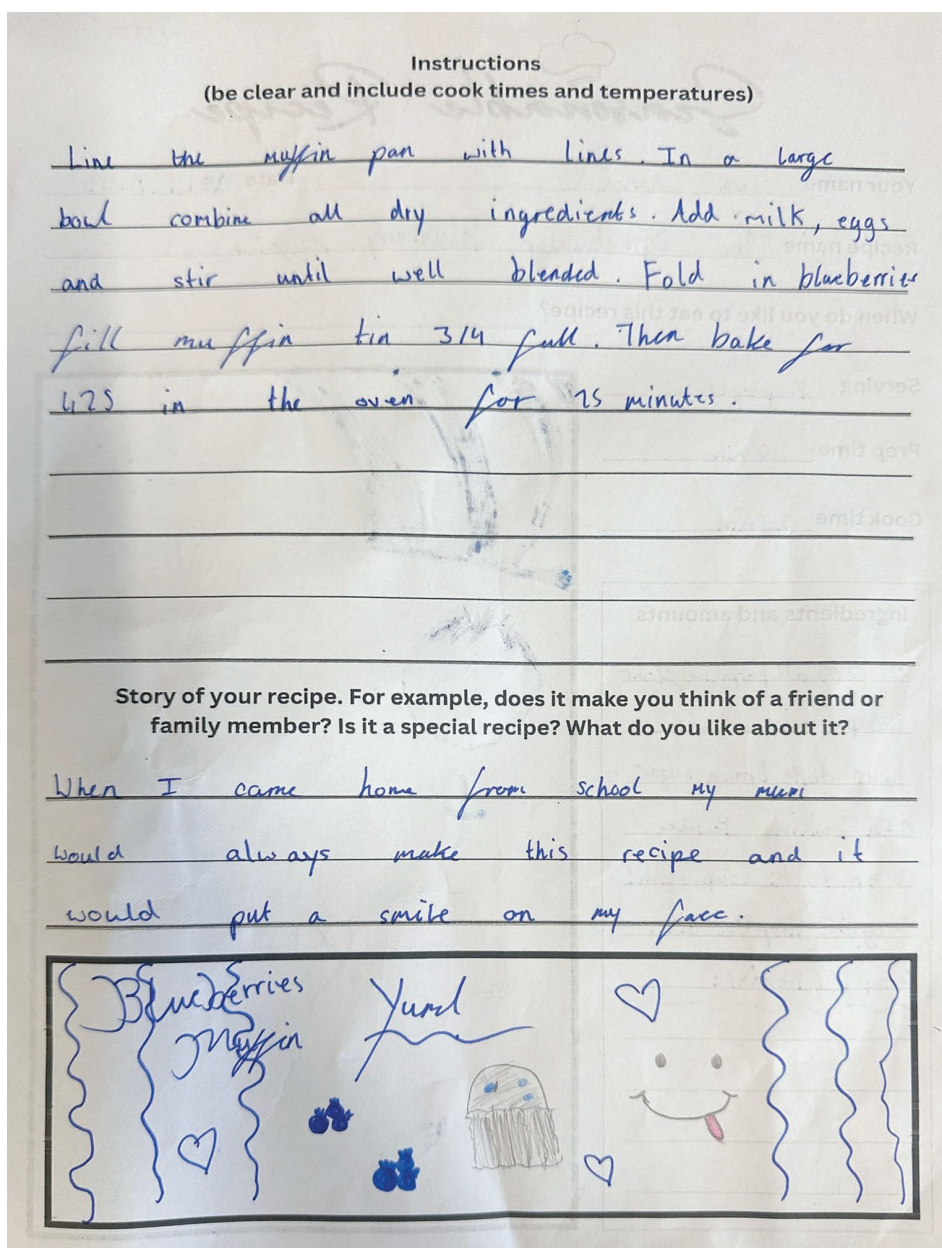 Instructions
(be clear and include cook times and temperatures)
Line the muffin pan with lines. In a large
bowl combine all dry ingredients. Add milk, eggs
and stir until well blended. Fold in blueberries
fill muffin tin 3/4 full. Then bake for
425 in the oven for 25 minutes.
Story of your recipe. For example, does it make you think of a friend or
family member? Is it a special recipe? What do you like about it?
When I came home from school my mum
would always make this recipe and it
would put a smile on my face.
Blueberries
Muffin